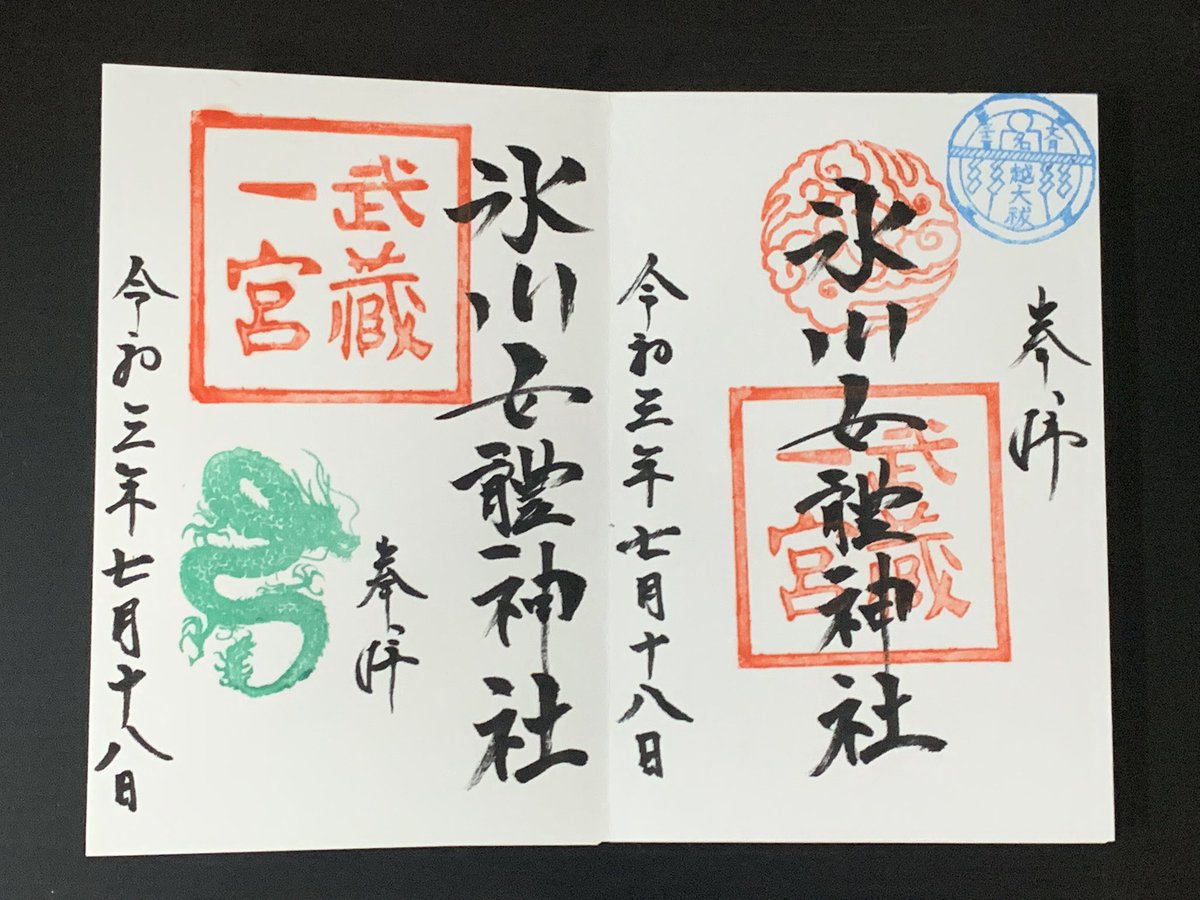 奉拝
氷川女體神社
武蔵
一宮
令和三年七月十八日
名越大祓
氷川女體神社
武蔵
一宮
奉拝
令和三年七月十八日